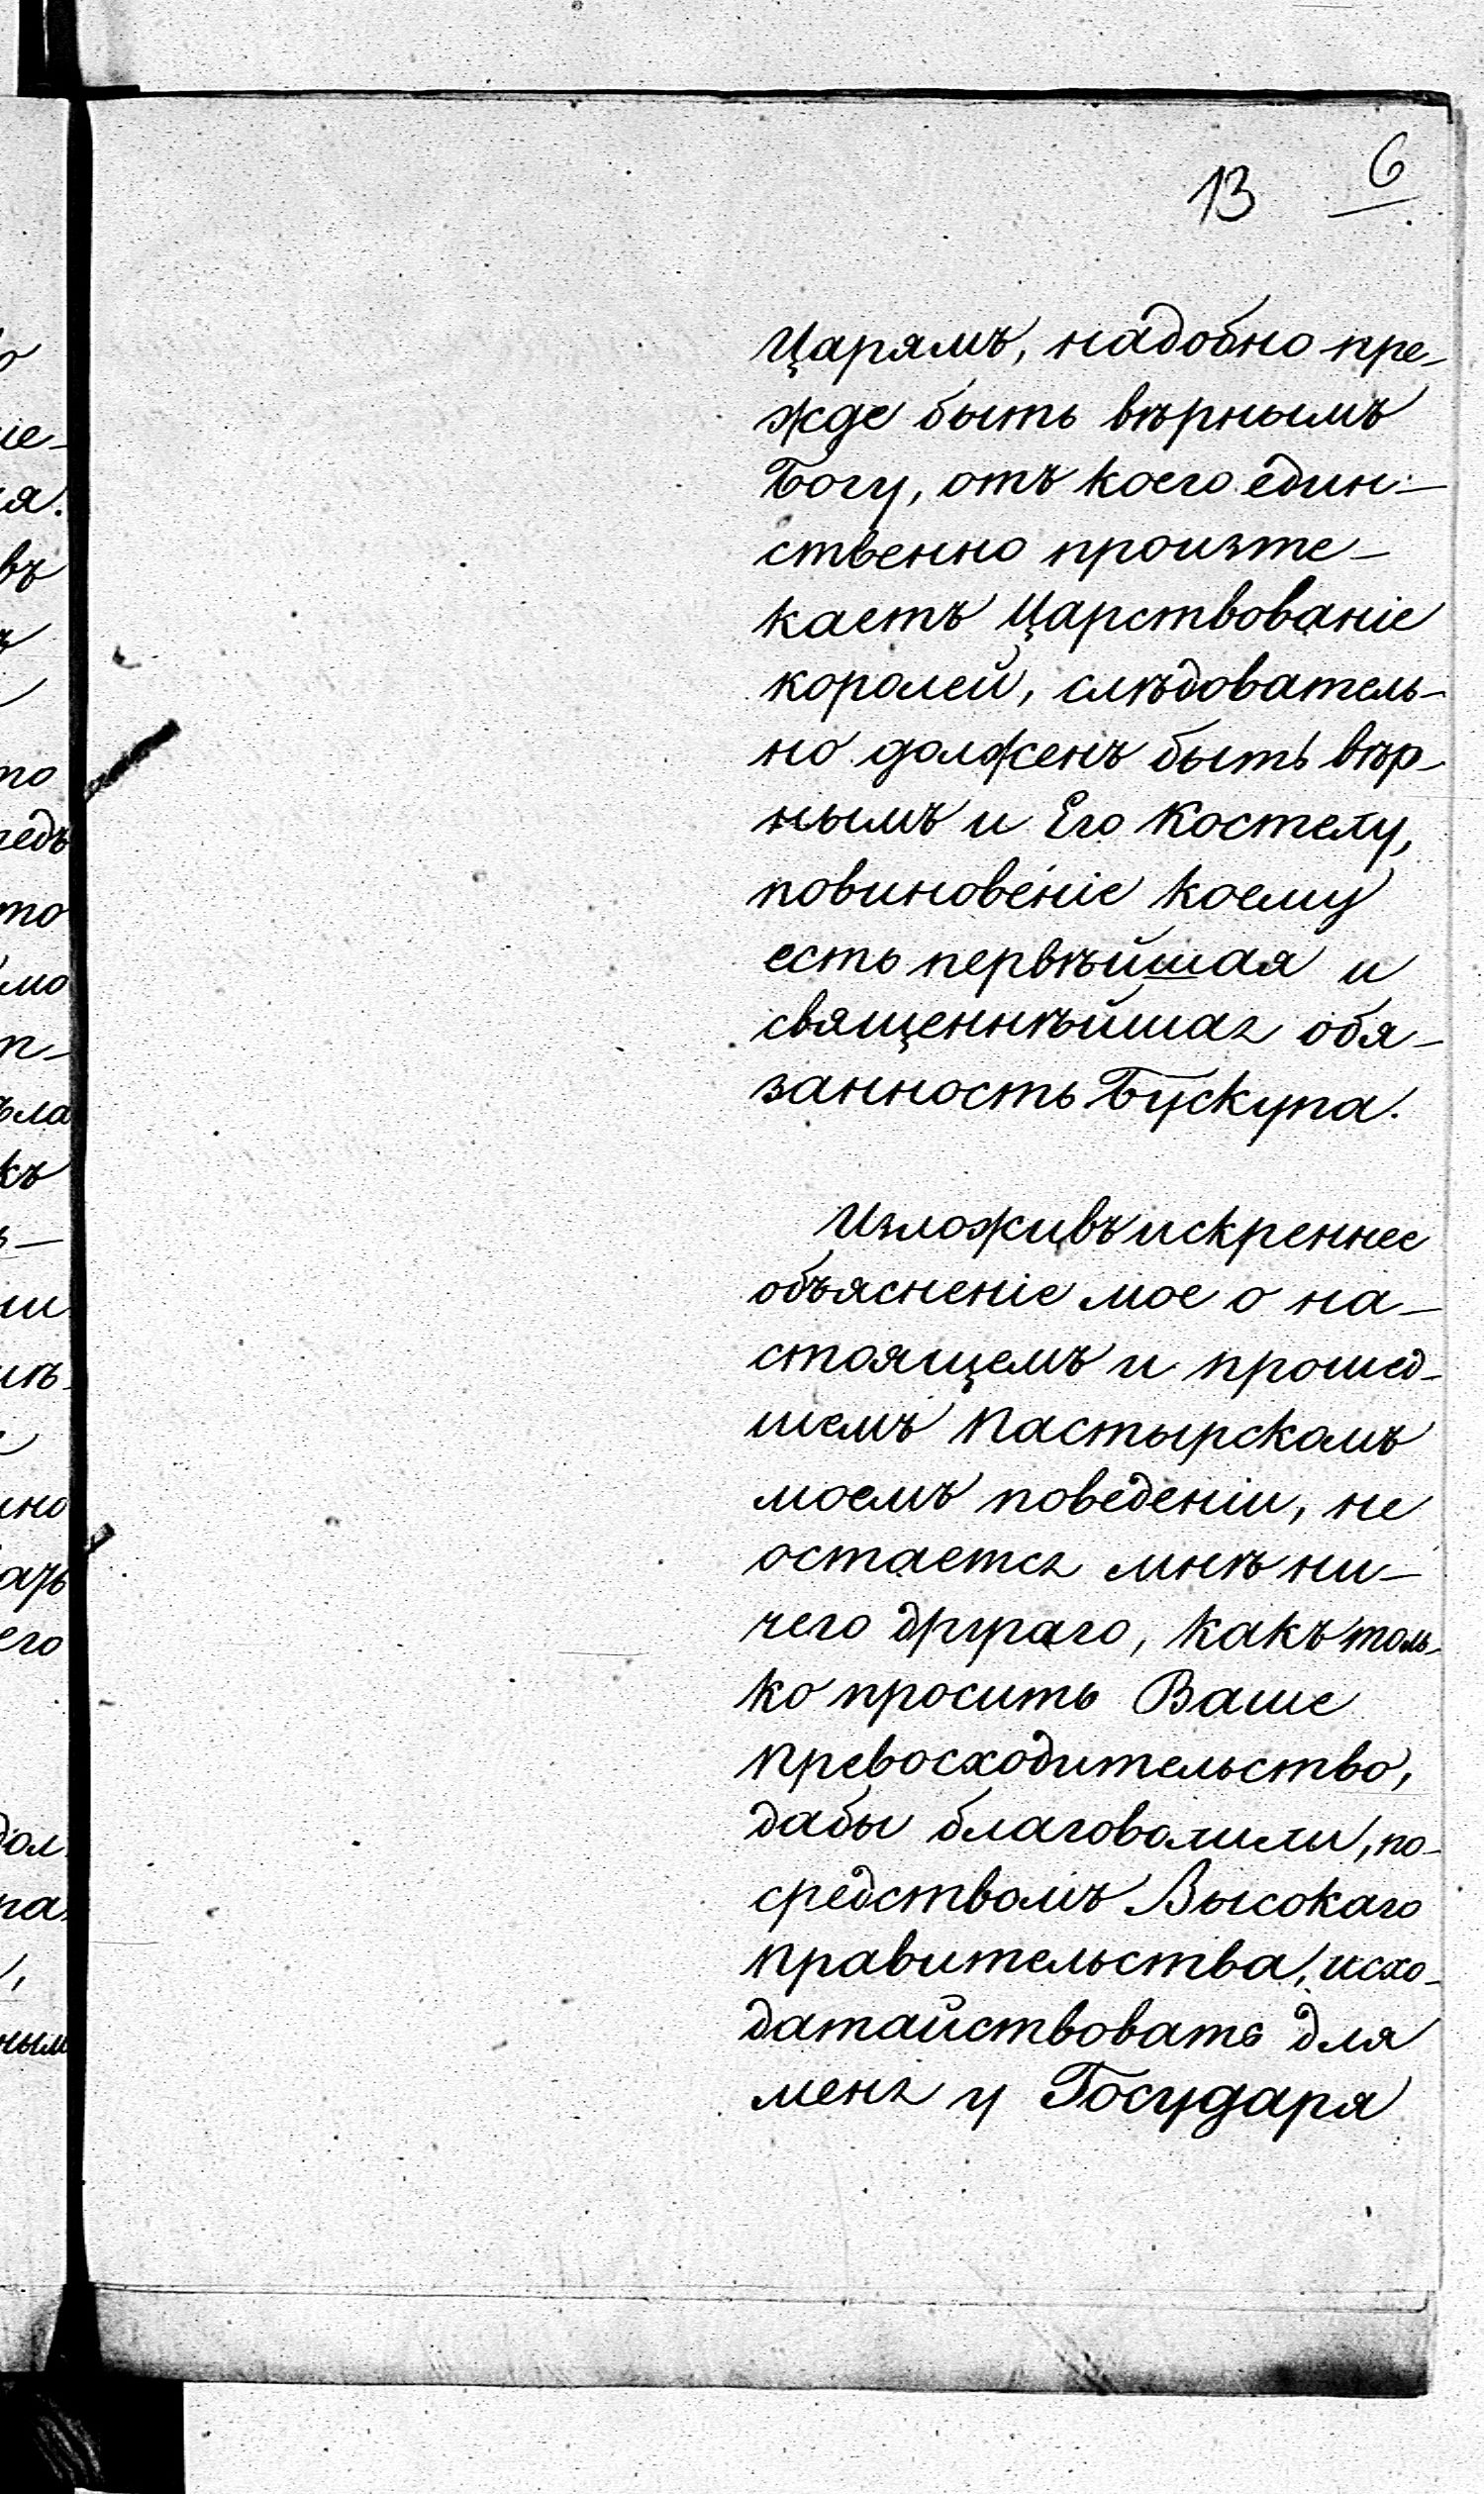 13 6
Царямъ, надобно пре-
жде быть вѣрнымъ
Богу, отъ коего един-
ственно произте-
каетъ Царствованіе
королей, слѣдователь-
но долженъ быть вѣр-
нымъ и Его Костелу,
повиновеніе коему
есть первѣйшая и
священнѣйшая обя-
занность Бускупа.
Изложивъ искреннее
объясненіе мое о на-
стоящемъ и прошед-
шемъ Пастырскомъ
моемъ поведеніи, не
остается мнѣ ни-
чего другаго, какъ толь-
ко просить Ваше
Превосходительство,
дабы благоволили, по-
средствомъ Высокаго
Правительства, исхо-
датайствовать для
меня у Государя